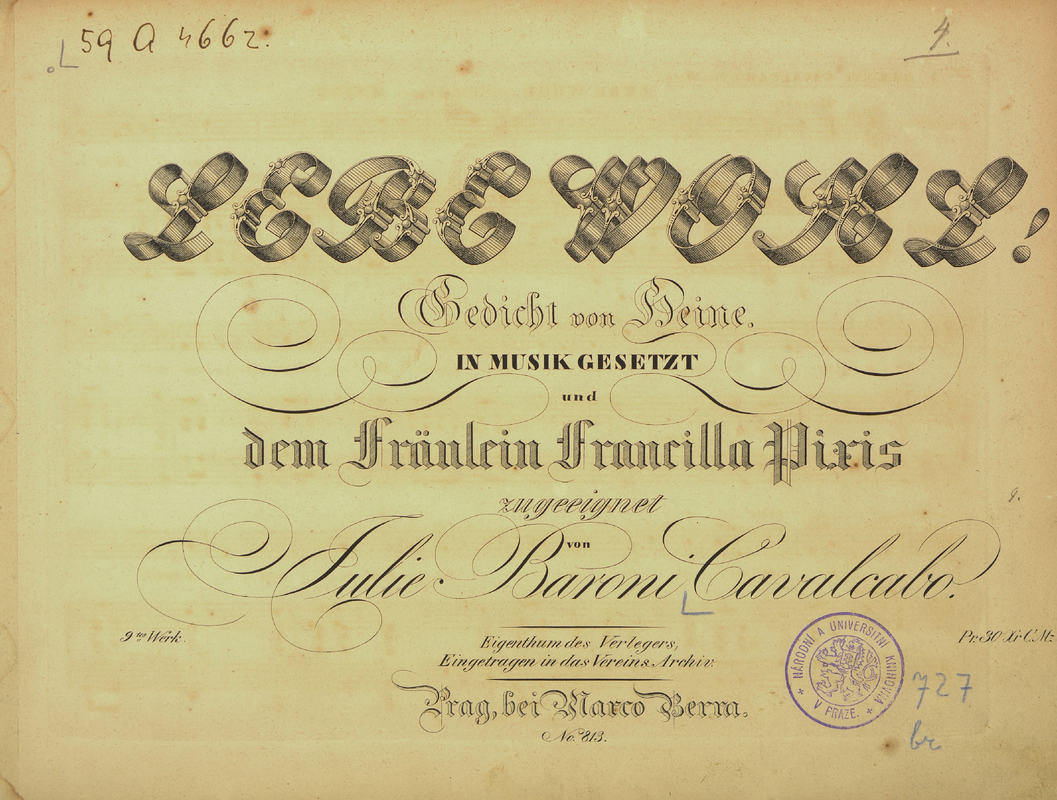 59 A 4662.
4.
LEBE WOHL!
Gedicht von Heine.
IN MUSIK GESETZT
und
dem Fräulein Francilla Pixis
zugeeignet
von
Julie Baroni Cavalcabo.
9tes Werk.
Pr. 30 Xr. C.M.
Eigenthum des Verlegers,
Eingetragen in das Vereins Archiv.
Prag, bei Marco Berra.
No. 813.
NÁRODNÍ A UNIVERSITNÍ KNIHOVNA
V PRAZE.
727
br